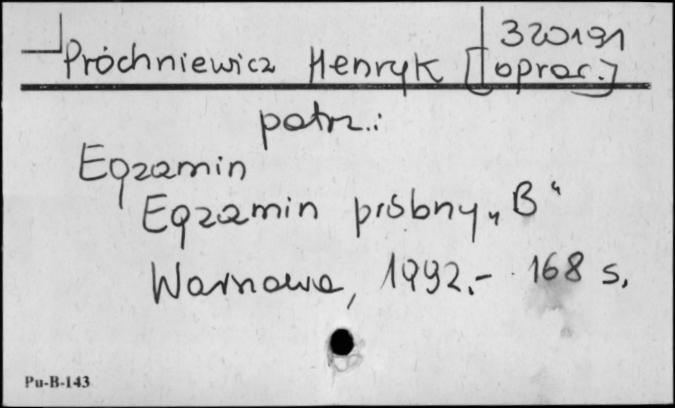 320191
Próchniewicz Henryk [oprac.]
patrz:
Egzamin
Egzamin próbny „B"
Warszawa, 1992.- 168 s.
Pu-B-143